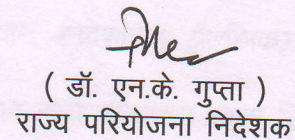 ( डॉ. एन.के. गुप्ता )
राज्य परियोजना निदेशक